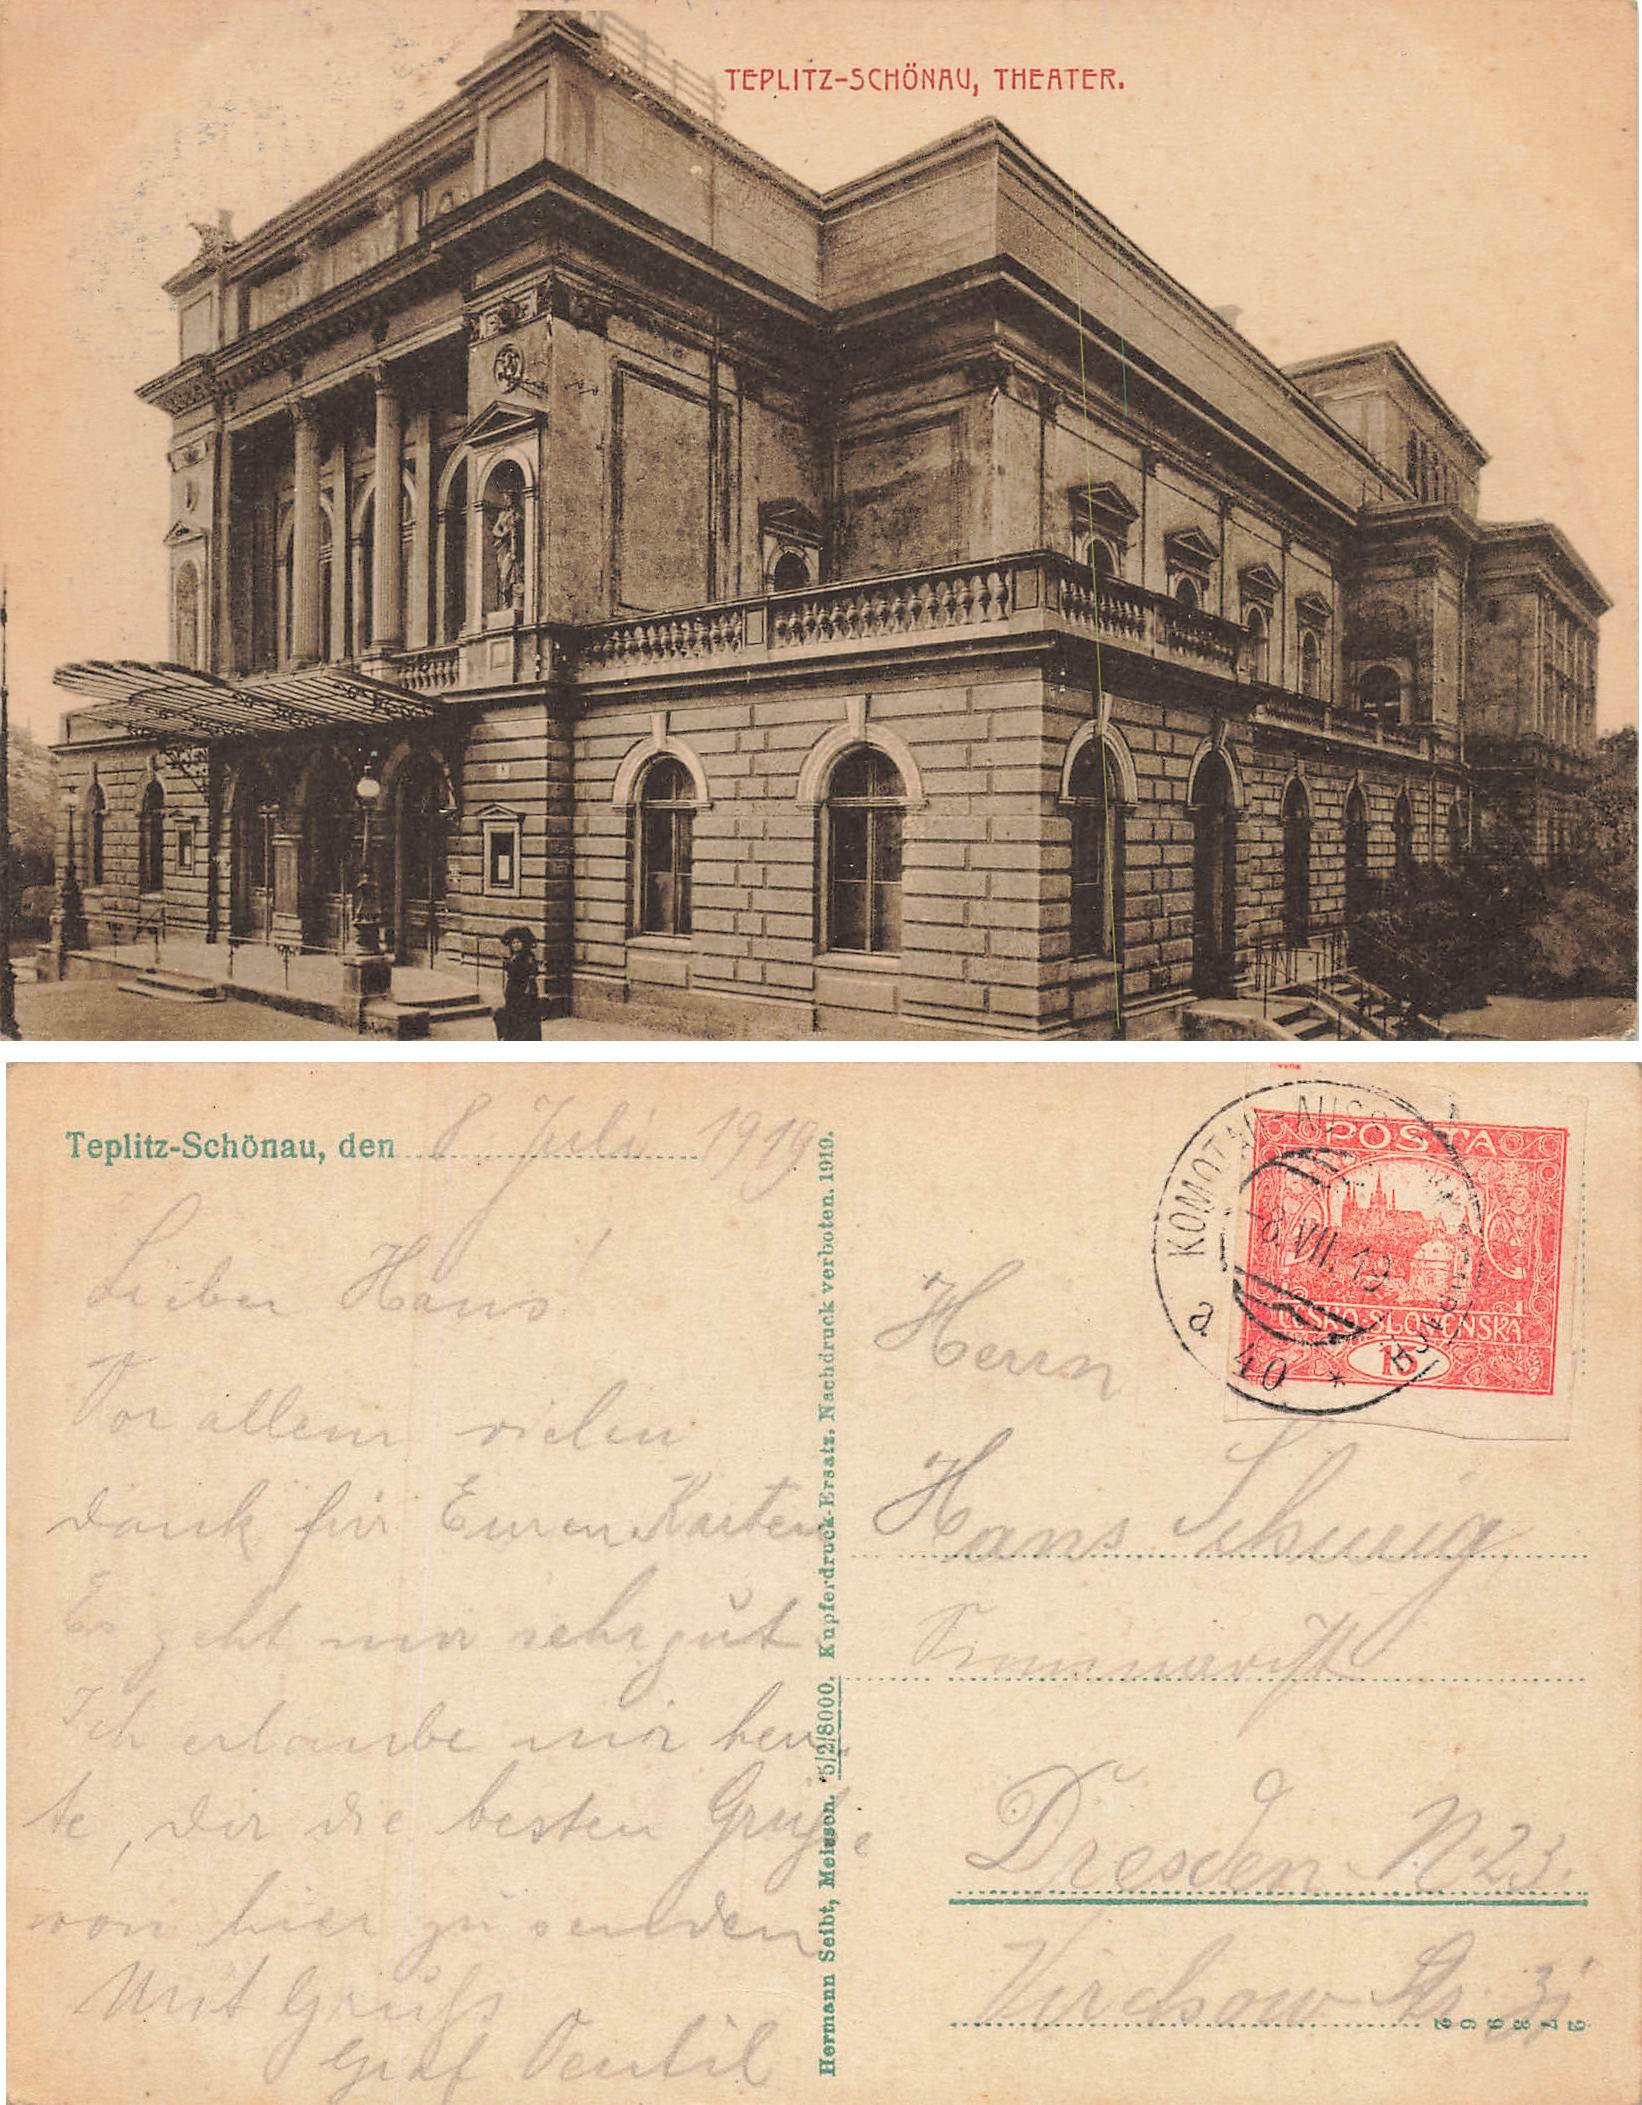 TEPLITZ-SCHÖNAU, THEATER.
Teplitz-Schönau, den 8. Juli 1919
Lieber Hans!
Vor allem vielen
dank für Euren Karten
Es geht mir sehr gut
Ich erlaube mir heu-
te, dir die besten Grüße
von hier zu senden
Mit Gruß
Graf
Hermann Seibt, Meissen. 5/2/8000. Kupferdruck-Ersatz. Nachdruck verboten. 1919.
KOMOTAU-AUSS
-8.VII.19
a
40 *
POSTA
ČESKO-SLOVENSKÁ
15
Herrn
Hans
Dresden N.23.
Virchow Str. 31
273962